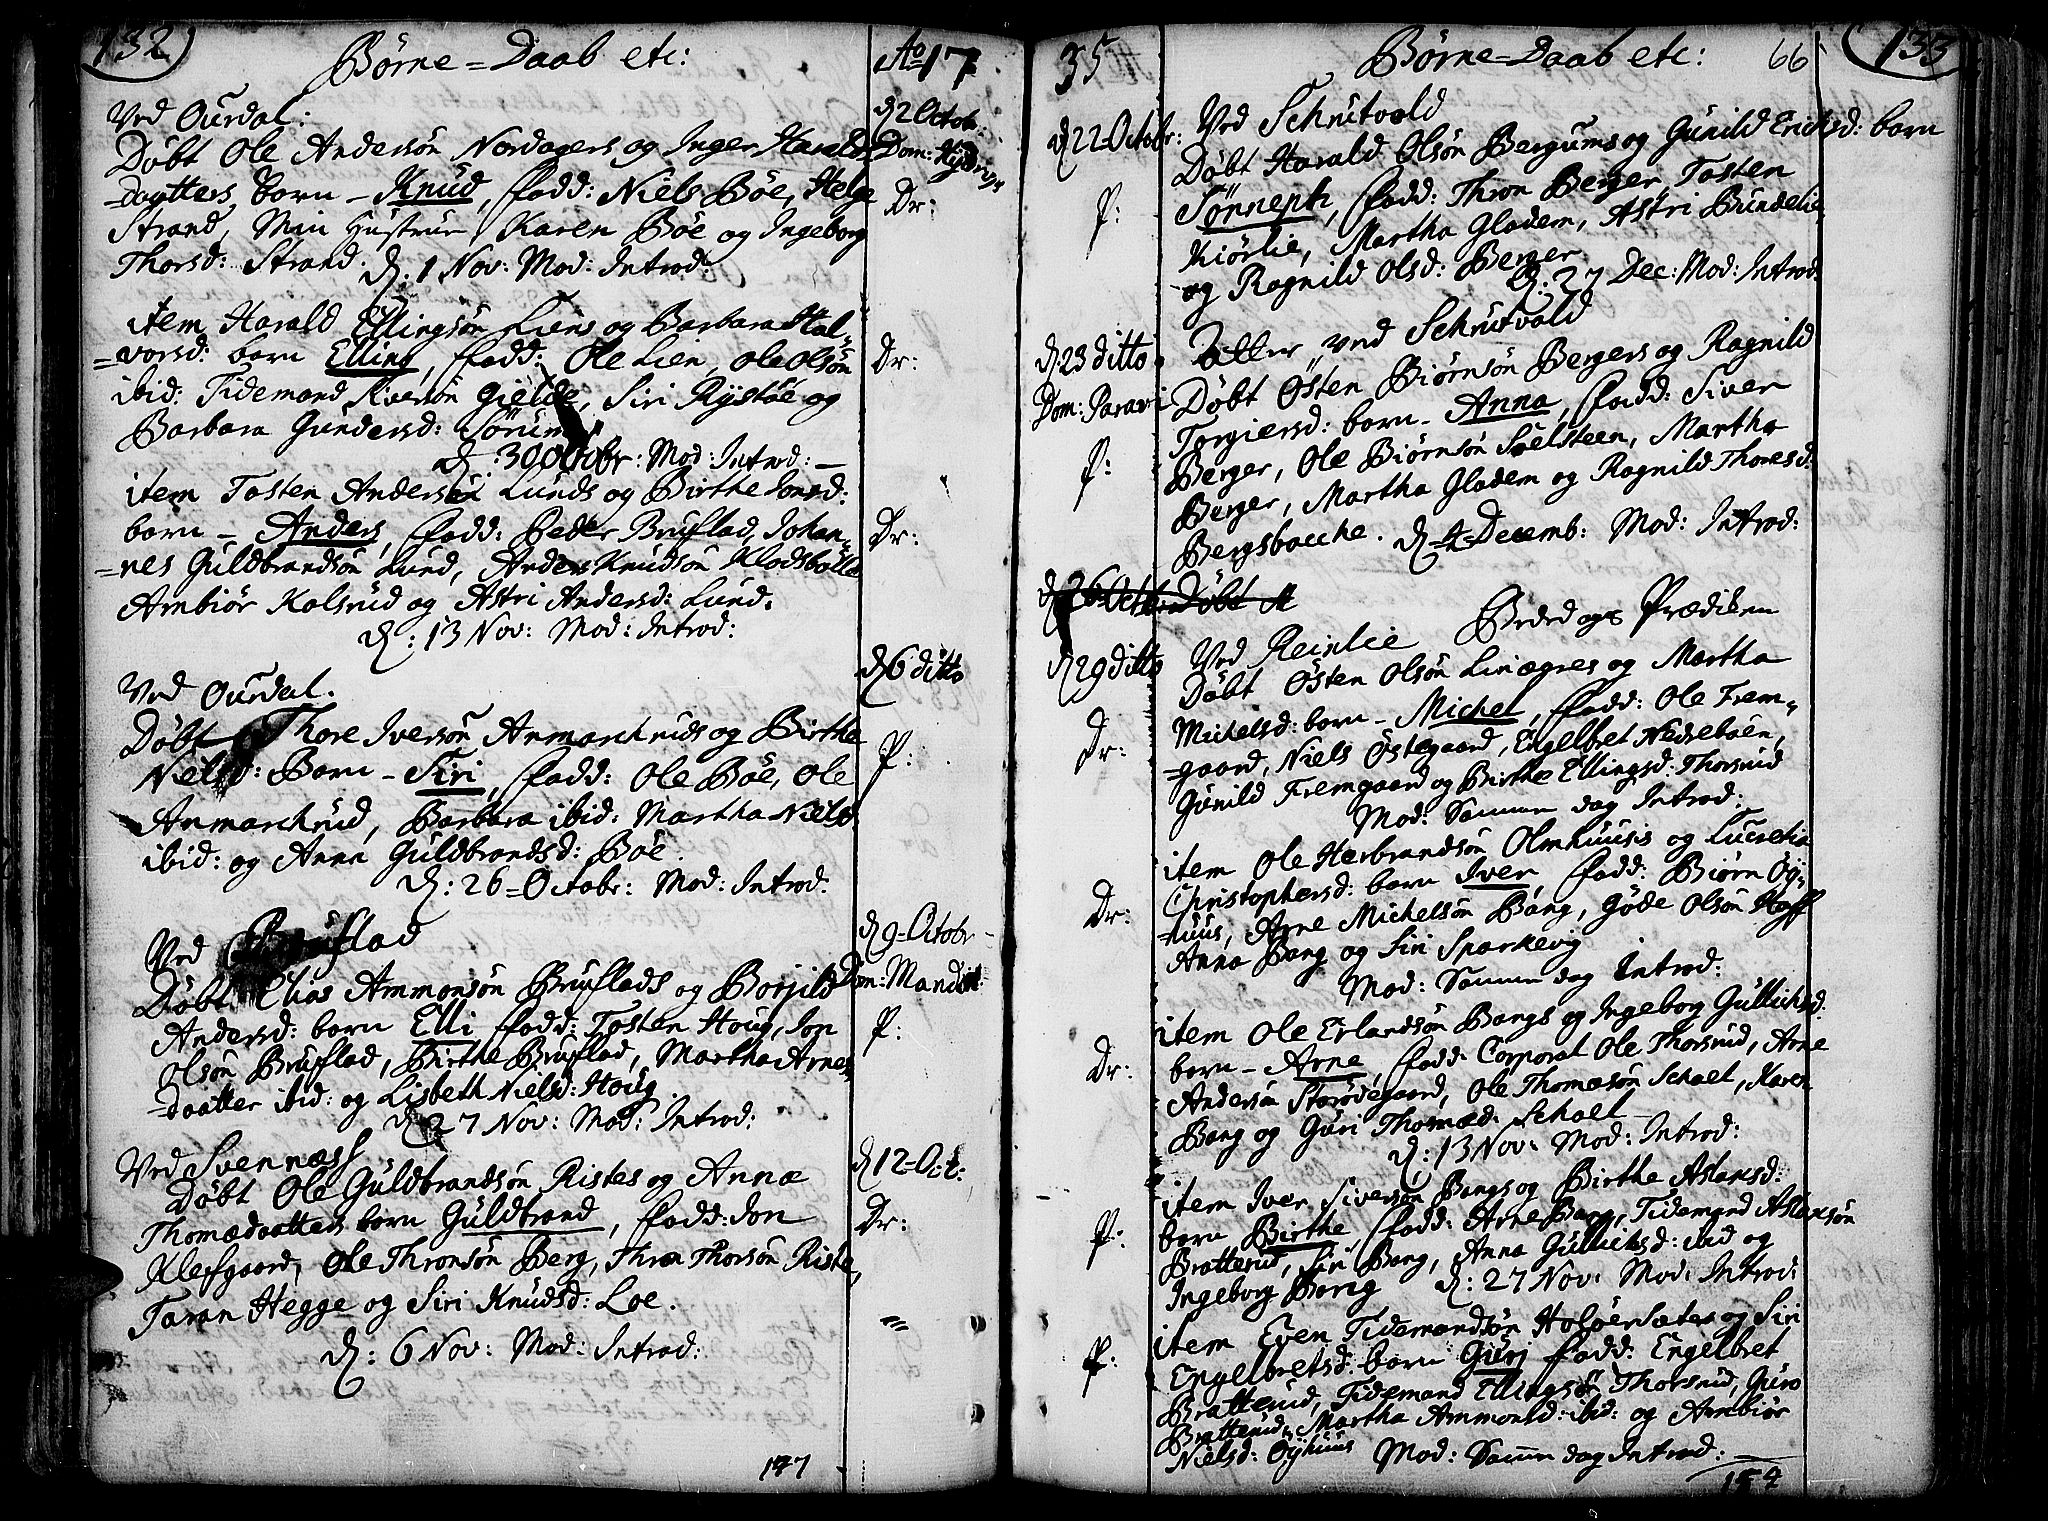 132
Børne-Daab etc:
Ao 17
Ved Ourdal:
d 2 Octobr:
Døbt Ole Andersøn Nordagers og Inger Haralds
Dom:
-daatters born - Knud, fadd: Niels Bøe, Helge
Dr:
Strand, Min Hustrue Karen Bøe og Ingeborg
Thorsd: Strand. D. 1 Nov: Mod: Introd:
item Harald Ellingsøn Liens og Barbara Hal-
-vorsd: born Elling, fadd: Ole Lien, Ole Olsøn
Dr:
ibid: Tidemand Iversøn Gielde, Siri Rystøe og
Barbara Gundersd: Sørum.
D: 30 Octobr: Mod: Introd: —
item Tosten Andersøn Lunds og Birthe Jonsd:
born - Anders, fadd: Peder Bruflad, Johan-
Dr:
-nes Guldbrandsøn Lund, Anders Knudsøn Klodsbølle
Ambiør Kolsrud og Astri Andersd: Lund.
D: 13 Nov: Mod: Introd:
Ved Ourdal.
d 6 ditto
Døbt Thore Iversøn Anmarckruds og Birthe
Nielsd: Born - Siri, fadd: Ole Bøe, Ole
P:
Anmarckrud, Barbara ibid: Martha Nielsd
ibid: og Anna Guldbrandsd: Bøe.
D: 26 Octobr: Mod: Introd.
Ved Bruflad
d 9 Octobr
Døbt Elias Ammonsøn Bruflads og Borjild
Dom:
Andersd: born Elli fadd: Tosten Houg, Jon
P:
Olsøn Bruflad, Birthe Bruflad, Martha Arnes
-daatter ibid: og Lisbeth Nielsd: Houg
D 27 Nov: Mod: Introd:
Ved Svennæss
d 12 Oct:
Døbt Ole Guldbrandsøn Ristes og Annæ
Thomædaatters born Guldbrand, fadd: Jon
Dr:
Klefgaard, Ole Thronsøn Berg, Thron Thorsøn Riste,
Taran Hegge og Siri Knudsd: Loe.
D: 6 Nov: Mod: Introd:
177
35
Børne-Daab etc:
66
133
d 22 Octobr:
Ved Schrutvold
Døbt Harald Olsøn Bergums og Gunild Ericksd: born
P:
Sønneph, fadd: Thron Berger, Tosten
Kiørlie, Martha Gladem, Astri Bundelie
og Ragnild Olsd: Berger.
D. 27 Dec: Mod: Introd:
d 23 ditto
ved Schrutvold
Dom:
Døbt Østen Biørnsøn Bergers og Ragnild
Torgiersd: born - Anna, fadd: Siver
P:
Berger, Ole Biørnsøn Soelsteen, Martha
Berger, Martha Gladem og Ragnild Thoresd:
Bergsbacche. D 4 Decemb: Mod: Introd:
d 26 Octobr Døbt
Prædiken
d 29 ditto
Ved Reinlie
Døbt Østen Olsøn Liniægres og Martha
Michelsd: born - Michel, fadd: Ole Frem-
Dr:
-gaard, Niels Østegaard, Engelbret Nedrebøen,
Gunild Fremgaard og Birthe Ellingsd: Thorsrud
Mod: Samme dag Introd:
item Ole Herbrandsøn Olmhuusis og Lucretia
Christophersd: born Iver, fadd: Biørn Øy-
Dr:
-huus, Arne Michelsøn Bang, Gøde Olsøn Hoff
Anna Bang og Siri Sparkevig
Mod: Samme dag Introd:
item Ole Erlandsøn Bangs og Ingeborg Gullichsd
Dr:
born - Arne, fadd: Corporal Ole Thorsrud, Arne
Andersøn Storødegaard, Ole Thomæsøn Schaet, Karen
Bang og Guri Thomæd: Schaet —
D: 13 Nov: Mod: Introd:
item Iver Siversøn Bangs og Birthe Aslacsd:
P:
born Birthe fadd: Arne Bang, Tidemand Aslacsøn
Bratterud, Siri Bang, Anna Gullichsd: ibid og
Ingeborg Bang D: 27 Nov: Mod: Introd:
item Even Tidemandsøn Holøersæter og Siri
P:
Engelbretsd: born Guri fadd: Engelbret
Bratterud, Tidemand Ellingsøn Thorsrud, Guro
Bratterud, Martha Ammonsd: ibid: og Ambiør
Nielsd: Øyhuus Mod: Samme dag Introd: —